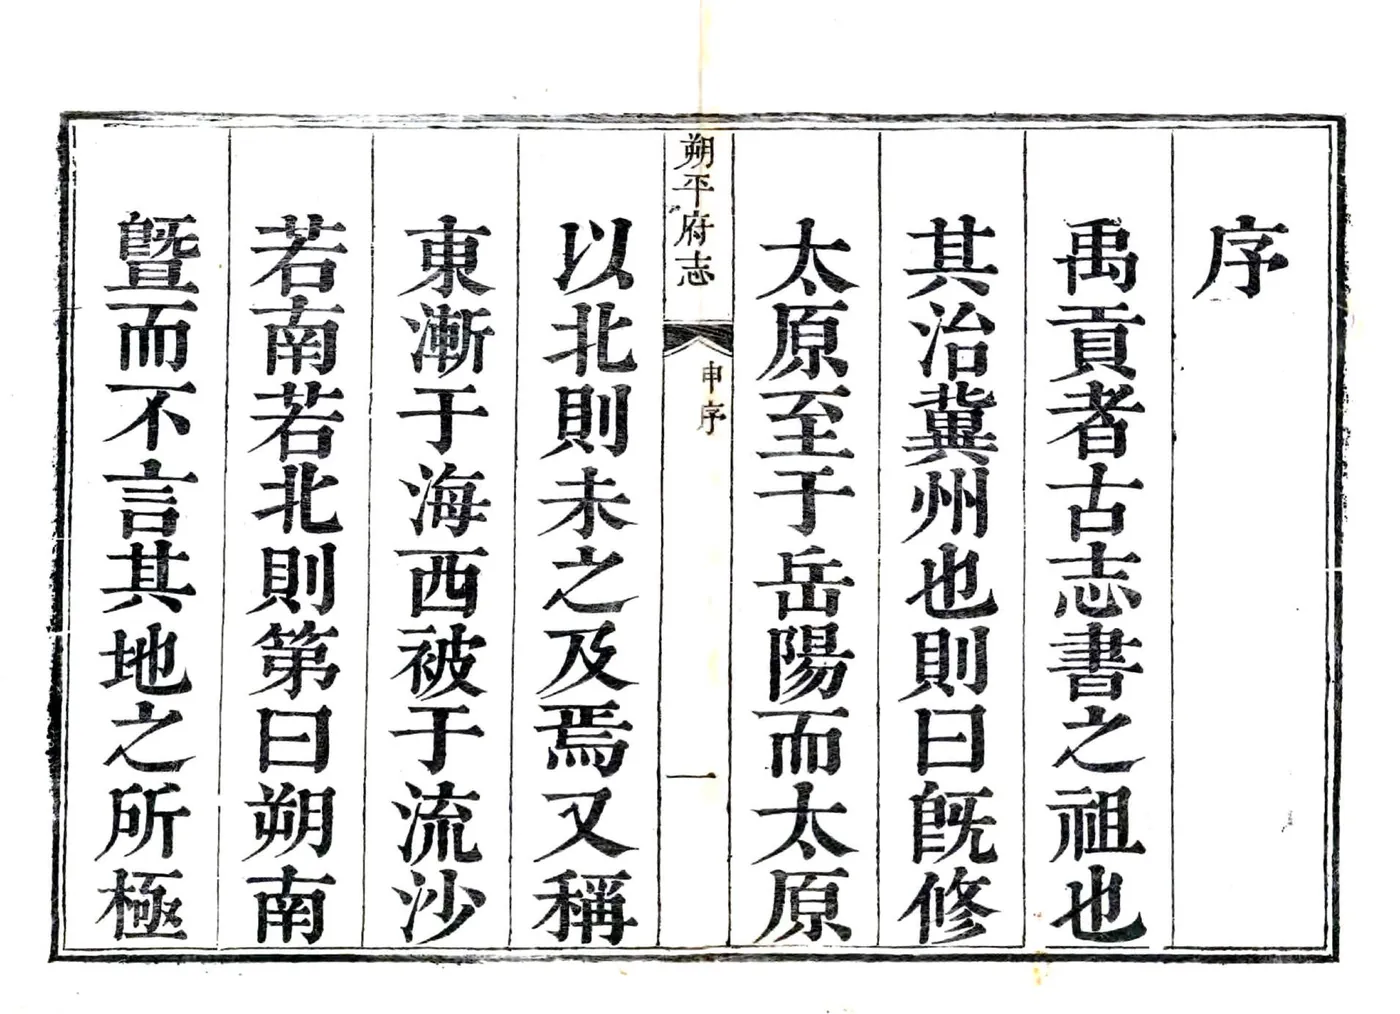 序
禹貢者古志書之祖也
其治冀州也則曰旣修
太原至于岳陽而太原
朔平府志
申序
一
以北則未之及焉又稱
東漸于海西被于流沙
若南若北則第曰朔南
暨而不言其地之所極